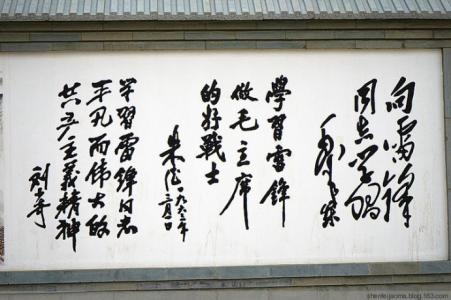 向雷锋
同志学习
毛泽东
學習雷鋒
做毛主席
的好戰士
朱德 一九六三年
学习雷锋同志
平凡而伟大的
共产主义精神
刘少奇